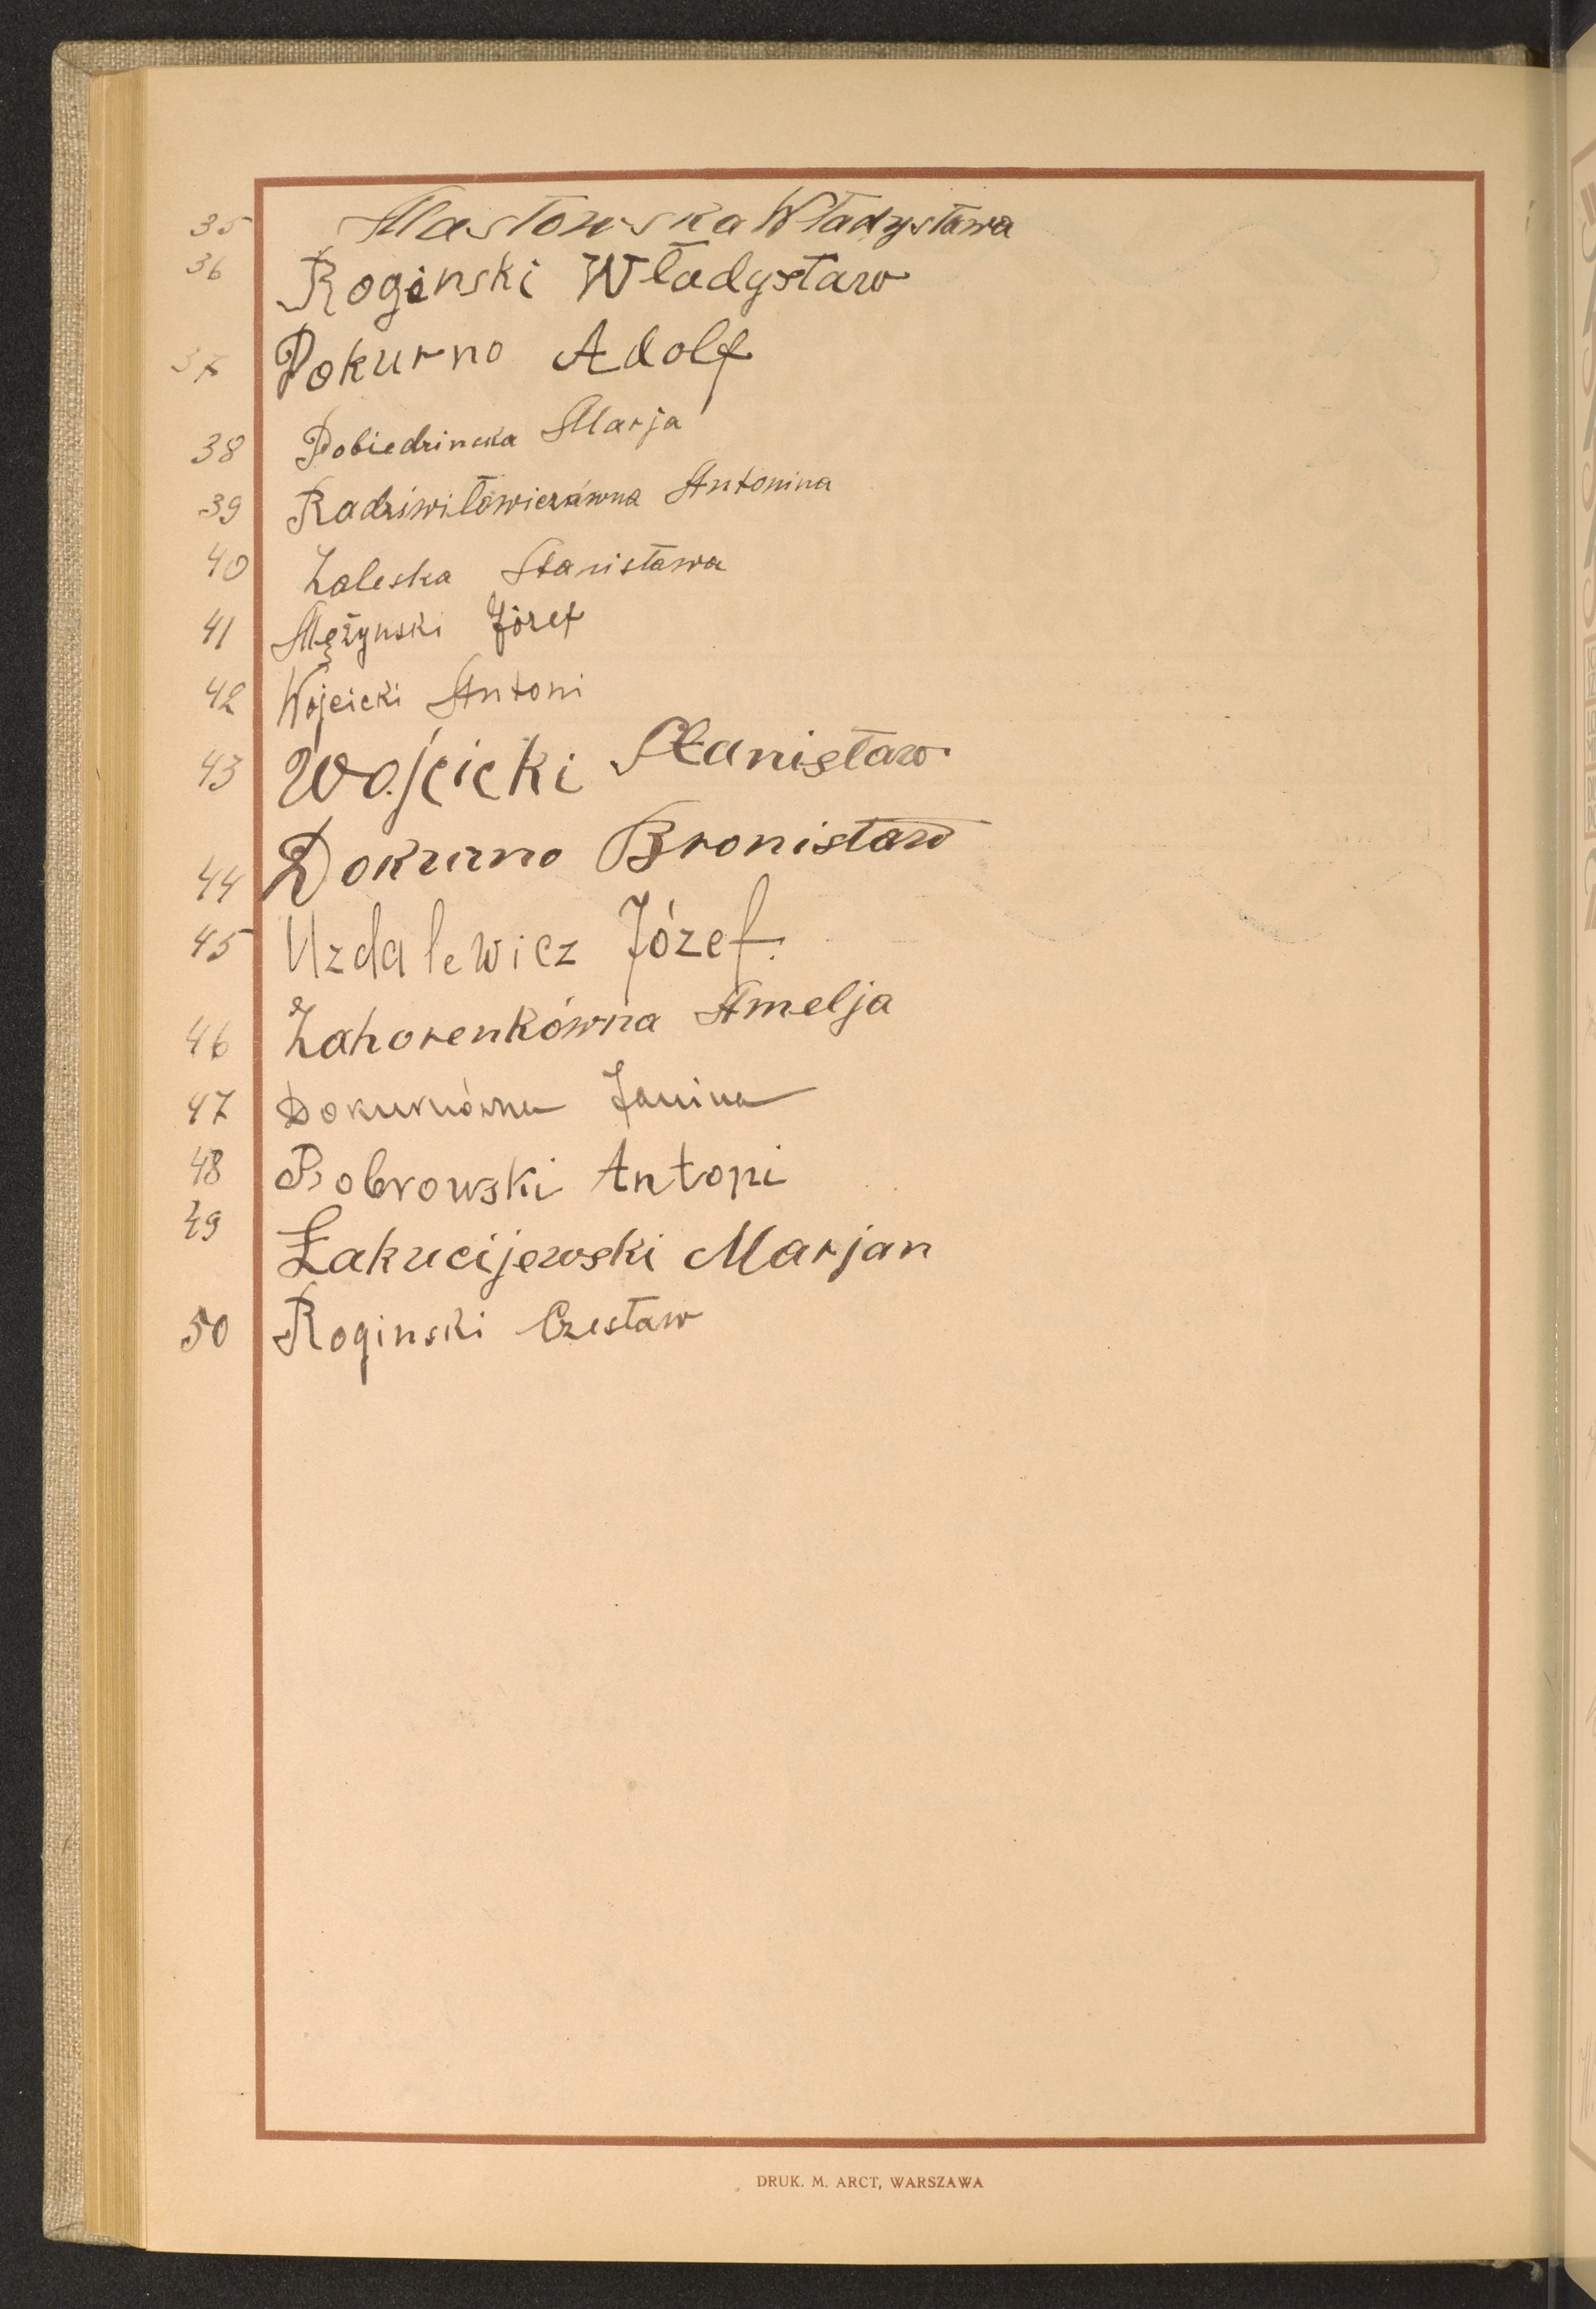 35 Masłowska Władysława
36 Roginski Władysław
37 Dokurno Adolf
38 Pobiedzinska Marja
39 Radziwiłowiczówna Antonina
40 Zaleska Stanisława
41 Mężynski Józef
42 Wojcicki Antoni
43 Wojcicki Stanisław
44 Dokurno Bronisław
45 Uzdalewicz Józef.
46 Zahorenkówna Amelja
47 Dokurnówna Janina
48 Bobrowski Antoni
49 Łakucijewski Marjan
50 Roginski Czesław
DRUK. M. ARCT, WARSZAWA